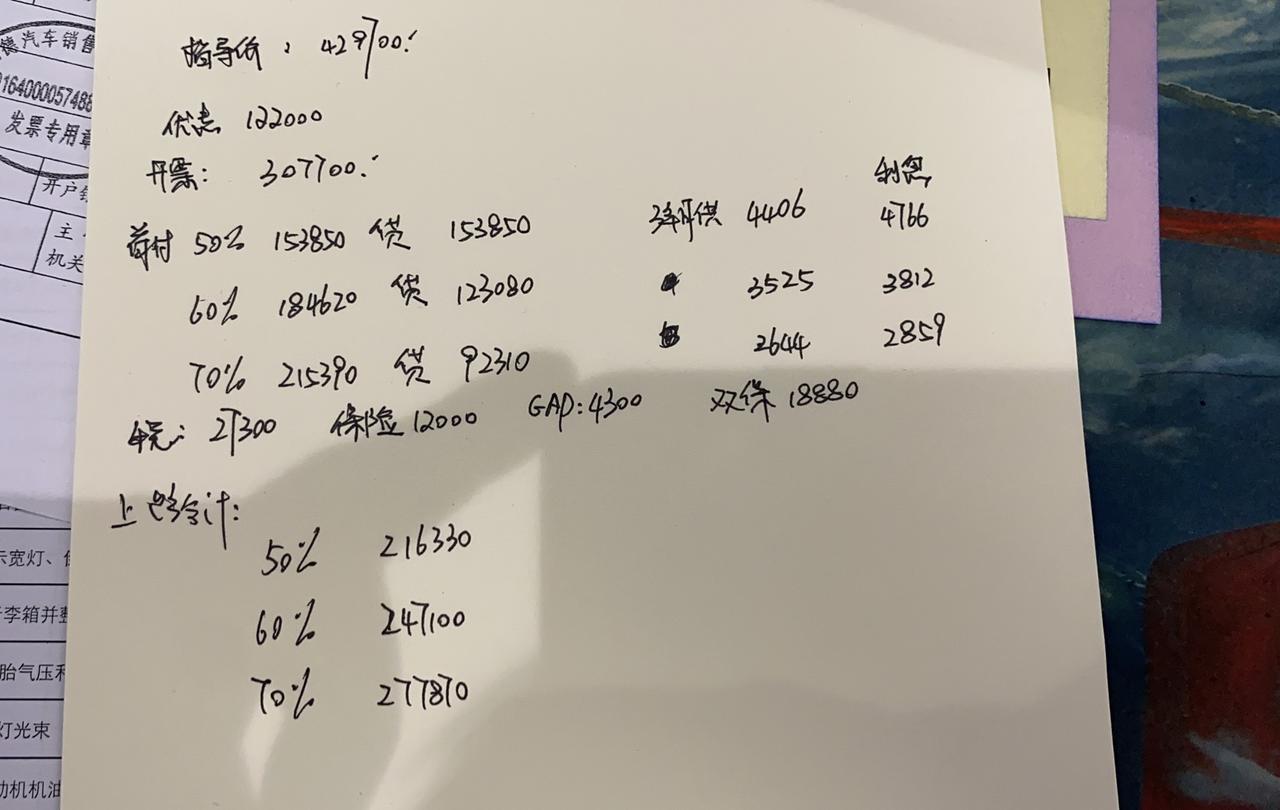 德汽车销售
9164000057488
发票专用章
开户
主
机关
指导价： 429700.
优惠 122000
开票： 307700.
利息
首付 50% 153850 贷 153850 3年月供 4406 4766
60% 184620 贷 123080 3525 3812
70% 215390 贷 92310 2644 2859
税： 27300 保险 12000 GAP:4300 双保 18880
上 合计：
50% 216330
60% 247100
70% 277870
示宽灯、
李箱并整
胎气压和
灯光束
动机机油